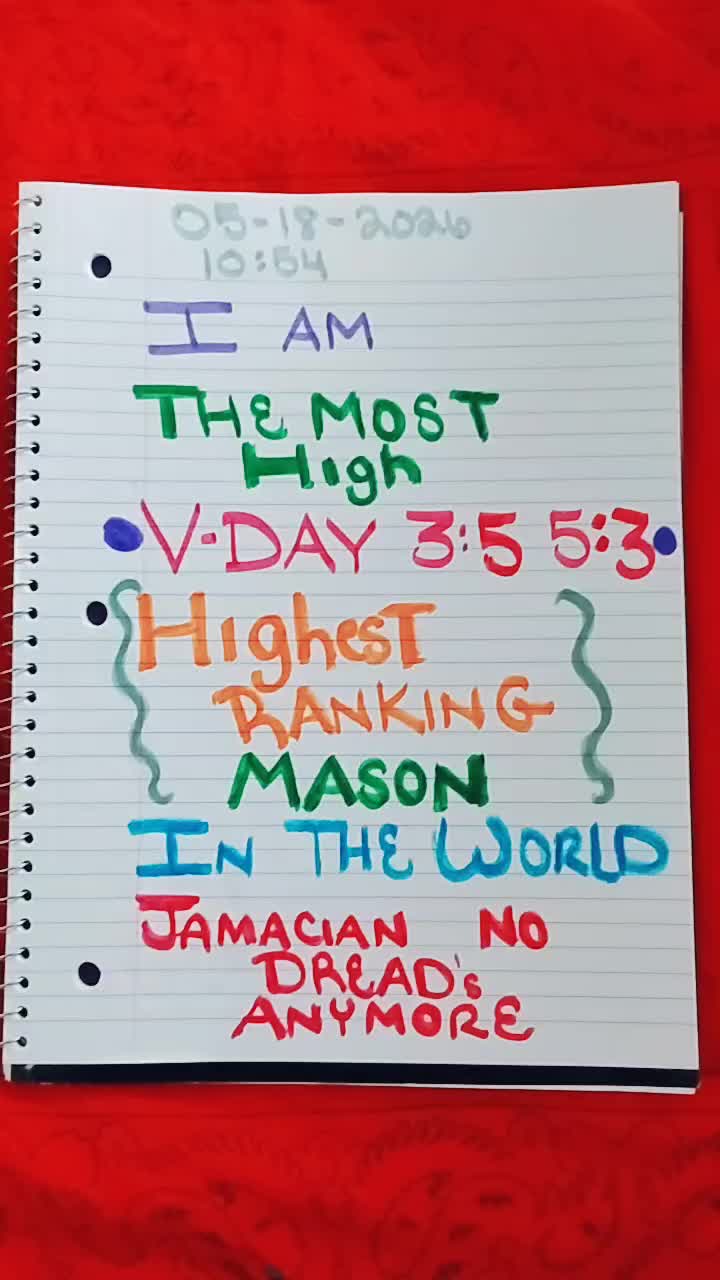 05-18-2026
10:54
I AM
THE MOST
High
V-DAY 3:5 5:3
HighesT
RANKING
MASON
IN THE WORLD
JAMACIAN NO
DREAD's
ANYMORE